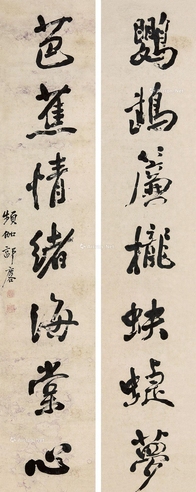 鸚鵡簾櫳蛺蜨夢
芭蕉情緒海棠心
頻伽郭麐